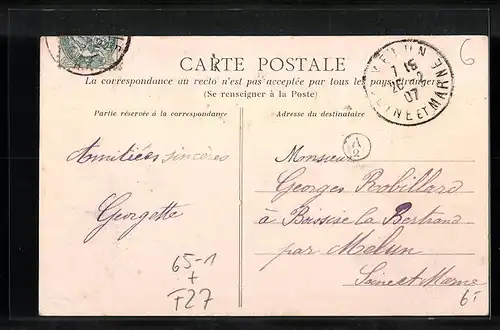 6
CARTE POSTALE
La correspondance au recto n'est pas acceptée par tous les pays étrangers
(Se renseigner à la Poste)
MELUN
7 15
26 - 2
07
SEINE ET MARNE
Partie réservée à la correspondance
Adresse du destinataire
Amitiées sincères
Georgette
A
2
Monsieur
Georges Robillard
à Boissise la Bertrand
par Melun
Seine et Marne
65-1
+
F27
6.-